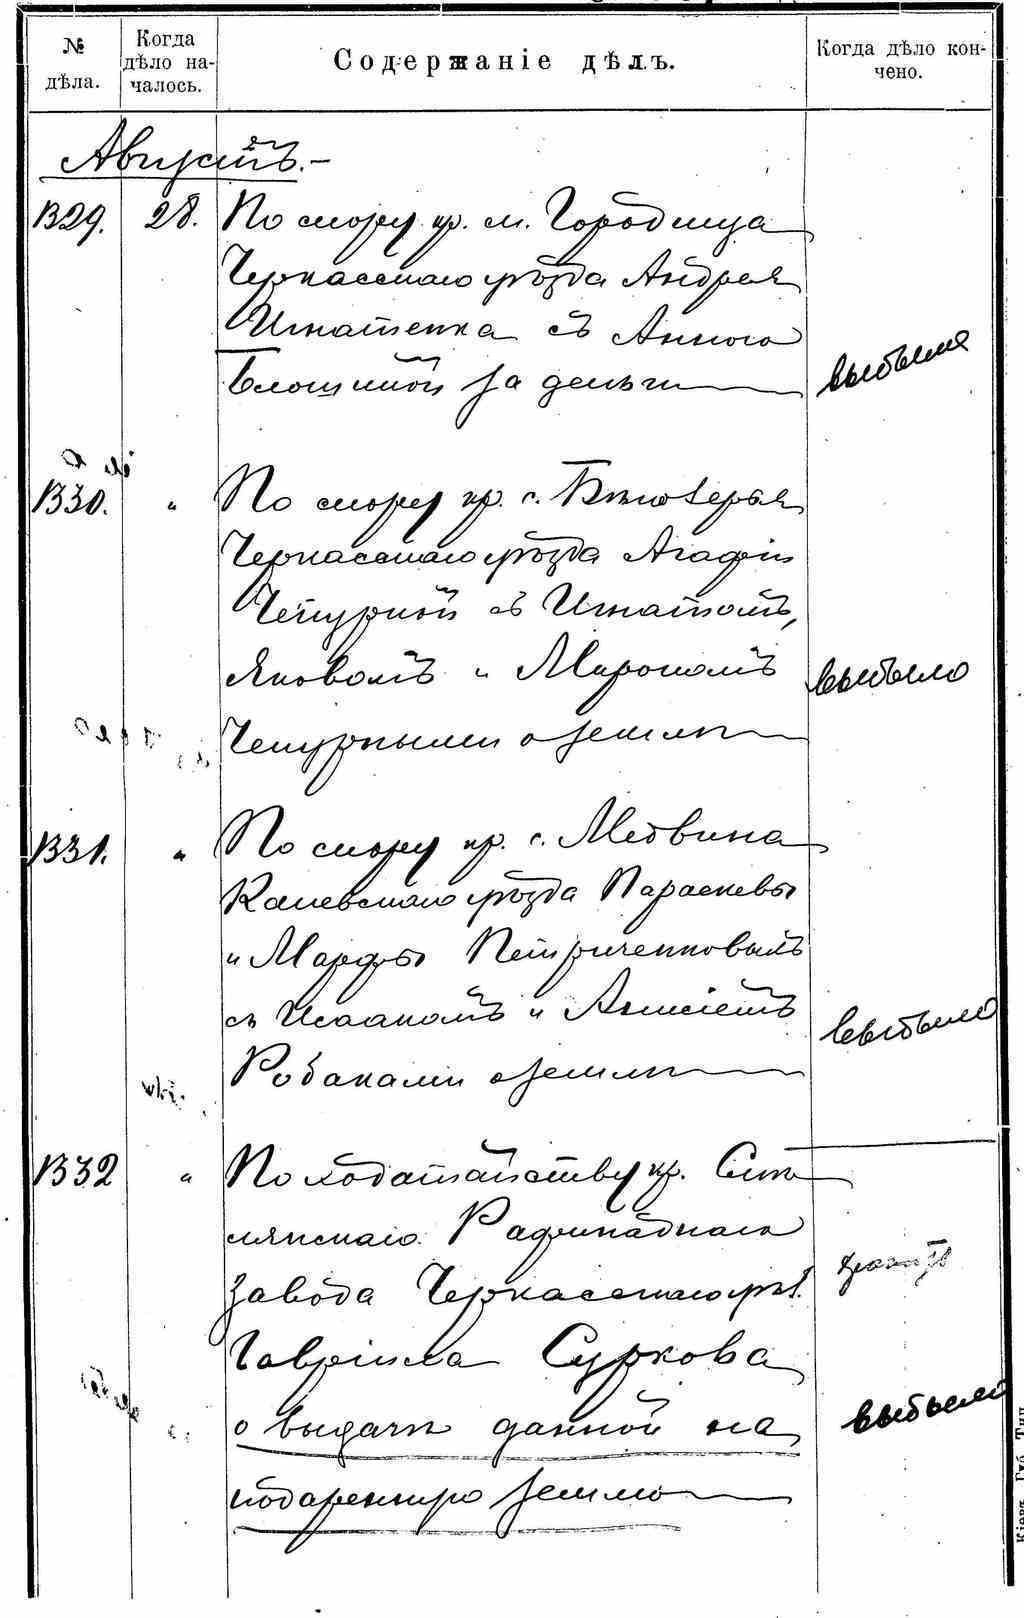 № дѣла.
Когда дѣло на-
чалось.
Содержаніе дѣлъ.
Когда дѣло кон-
чено.
Августъ.-
1329. 28. По спору кр. м. Городища
Черкасскаго уѣзда Андрея
Игнатенка съ Анною
Блощиной за деньги
выбыло
1330. " По спору кр. с. Бѣлозерья
Черкасскаго уѣзда Агафіи
Чепурной съ Игнатомъ,
Яковомъ и Марономъ
Чепурными о землѣ
выбыло
1331. " По спору кр. с. Медвина
Каневскаго уѣзда Параскевы
и Марфы Петриченковыхъ
съ Исаакомъ и Алексіемъ
Робаками о землѣ
выбыло
1332 " По ходатайству кр. Смѣ-
лянскаго Рафинаднаго
Завода Черкасскаго уѣз.
Гавріила Суркова
о выдачѣ данной на
подаренную землю
выбыло
Кіевъ, Губ. Тип.